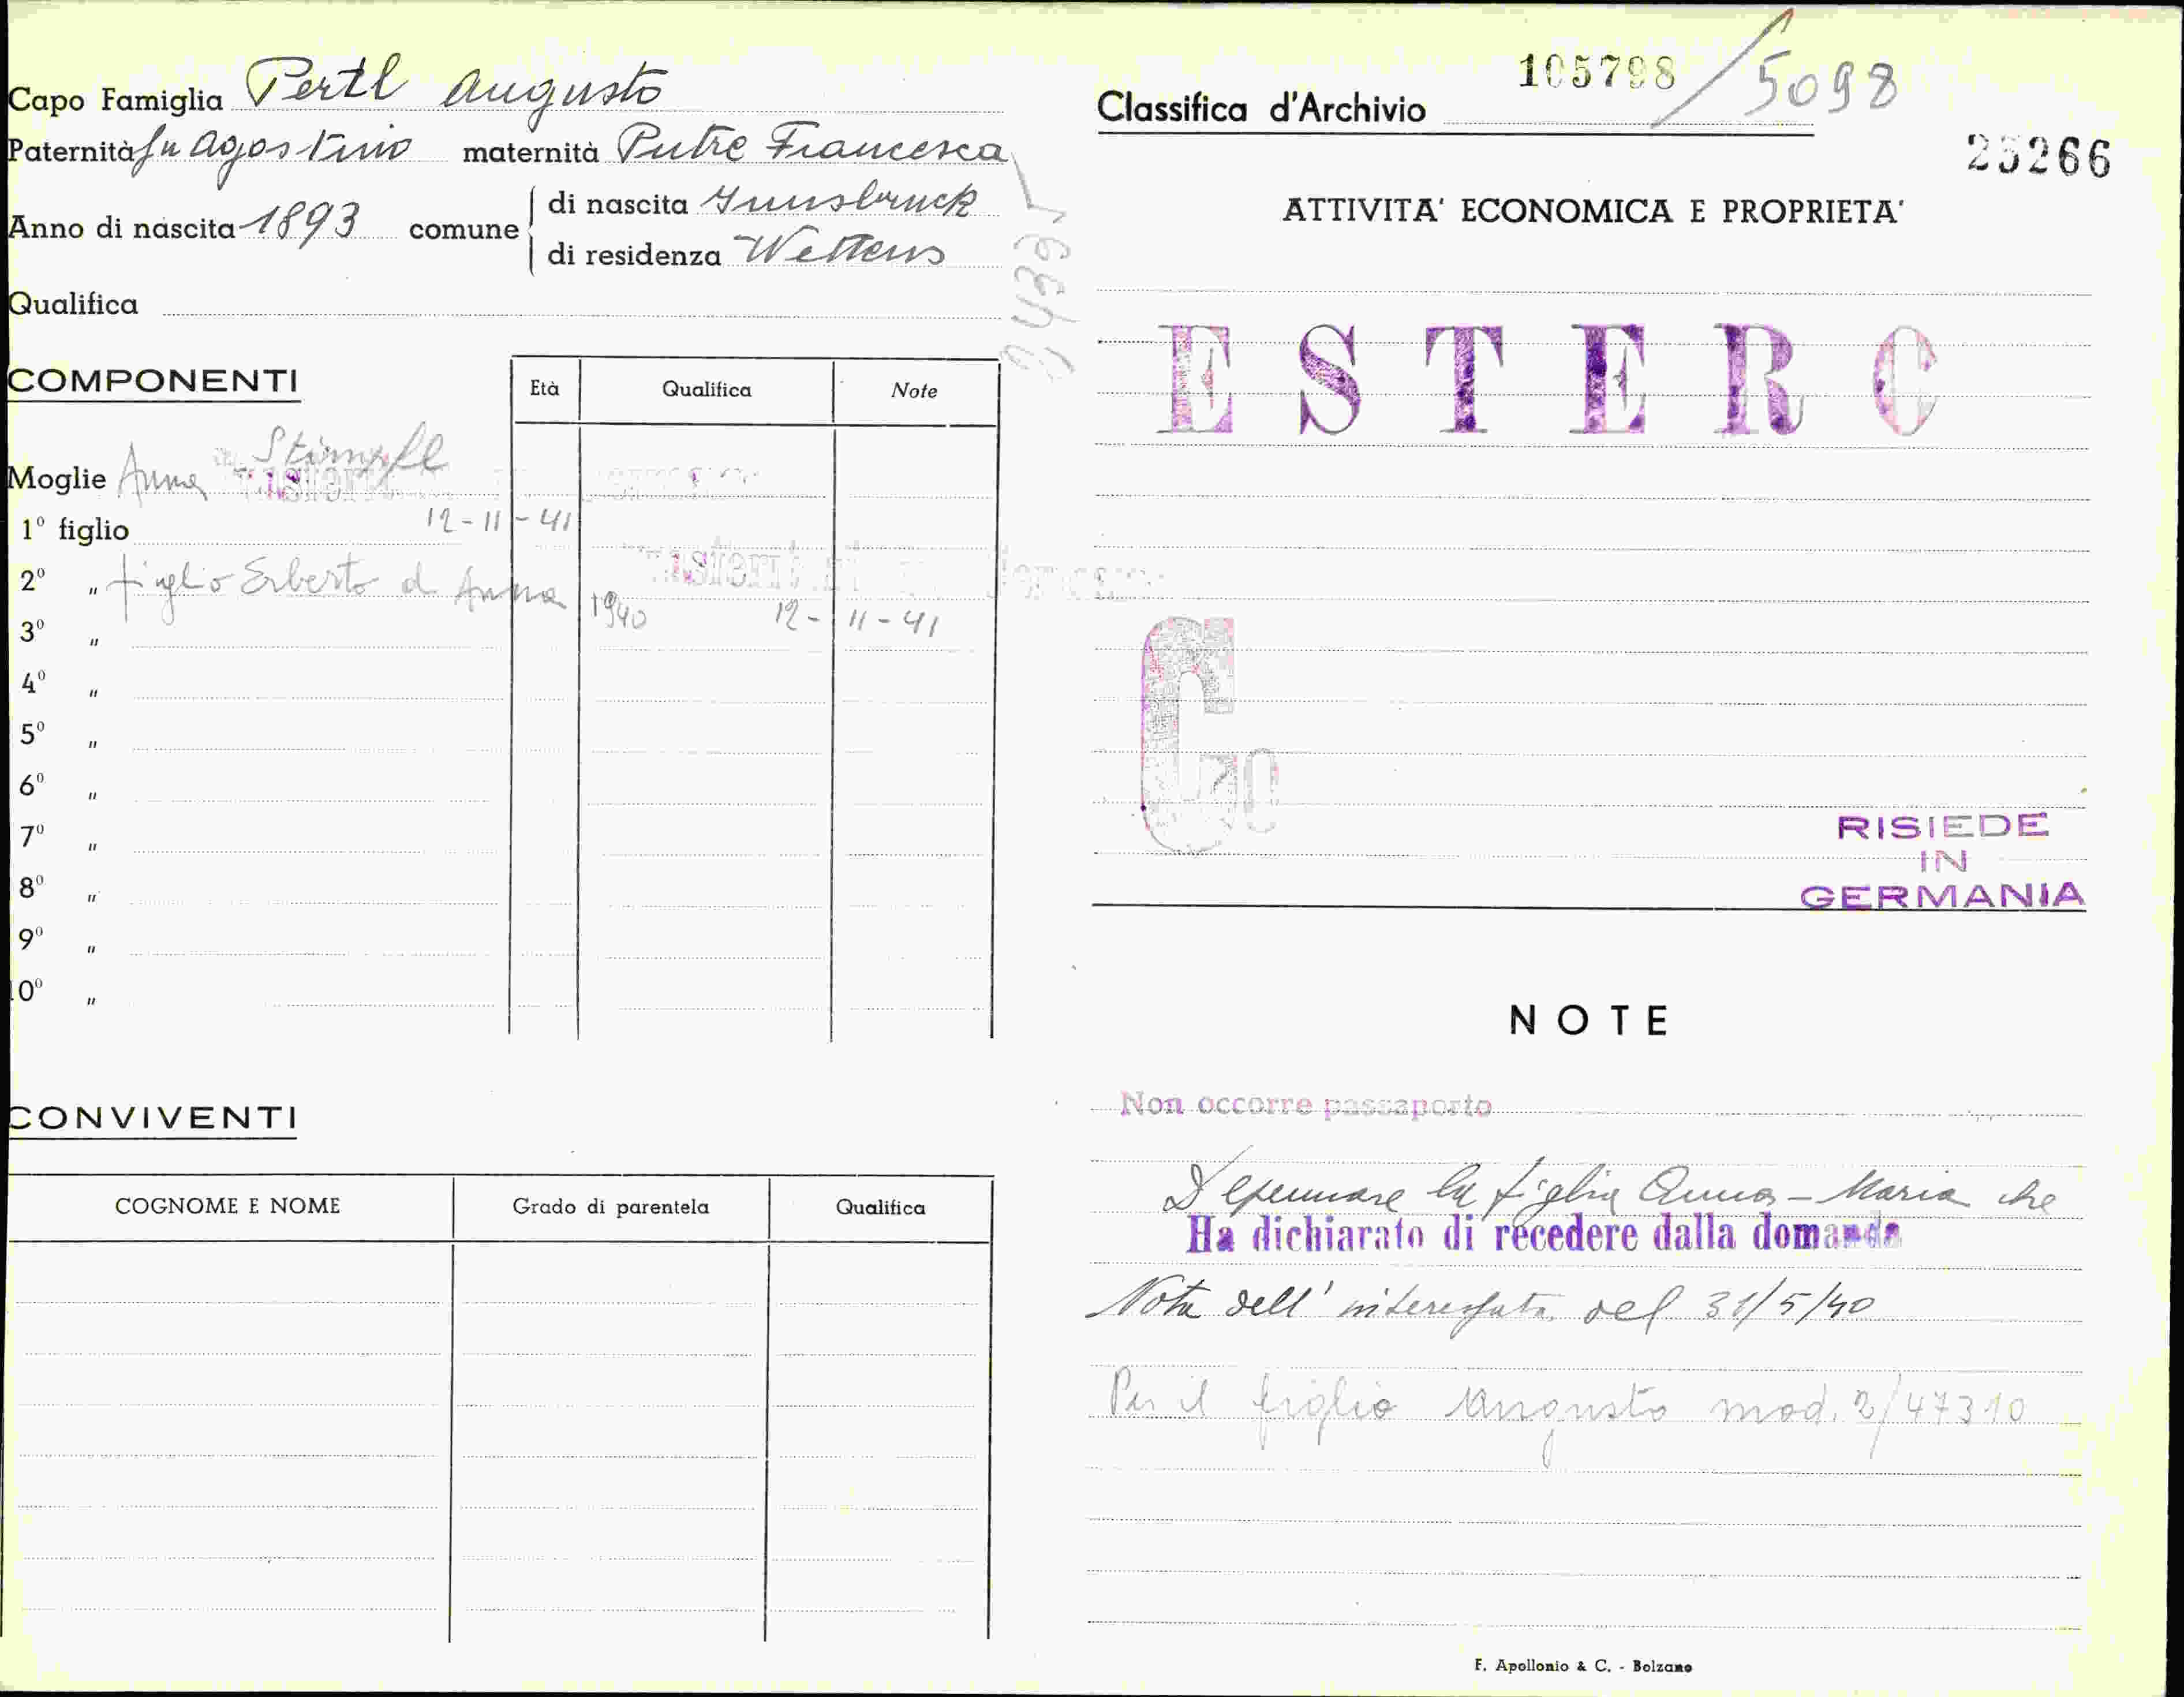 Capo Famiglia Pertl Augusto
Paternità fu Agostino maternità Putre Francesca
Anno di nascita 1893 comune di nascita Innsbruck
di residenza Wattens
Qualifica
COMPONENTI Età Qualifica Note
Stämpfl
Moglie Anna
12-11-41
1º figlio
2º " figlio Erberto d Anna 1940 12-11-41
3º "
4º "
5º "
6º "
7º "
8º "
9º "
10º "
CONVIVENTI
COGNOME E NOME Grado di parentela Qualifica
105798/5098
Classifica d'Archivio
25266
ATTIVITA' ECONOMICA E PROPRIETA'
ESTERO
G
RISIEDE
IN
GERMANIA
NOTE
Non occorre passaporto
Depennare la figlia Anna-Maria che
Ha dichiarato di recedere dalla domanda
Nota dell'interessata del 31/5/40
Per il figlio Augusto mod. 2/47310
F. Apollonio & C. - Bolzano